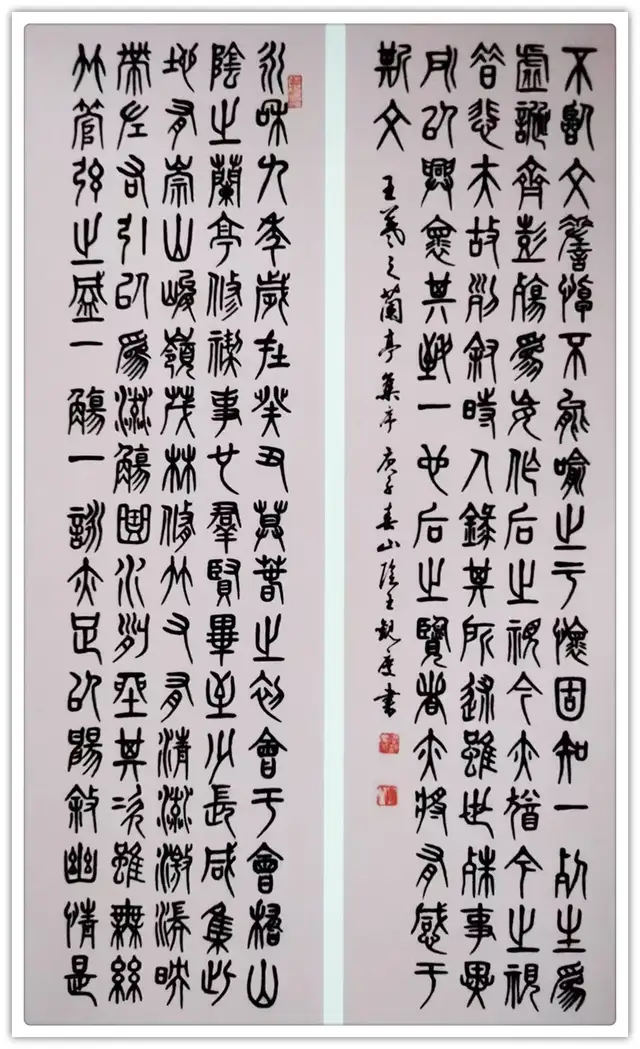 永和九年歲在癸丑莫春之初會于會稽山
陰之蘭亭修禊事也群賢畢至少長咸集此
地有崇山峻嶺茂林修竹又有清流激湍映
帶左右引以為流觴曲水列坐其次雖無絲
竹管弦之盛一觴一詠亦足以暢敘幽情是
不臨文嗟悼不能喻之于懷固知一死生為
虛誕齊彭殤為妄作后之視今亦猶今之視
昔悲夫故列敘時人錄其所述雖世殊事異
所以興懷其致一也后之覽者亦將有感于
斯文
王羲之蘭亭集序 庚子春山陰王書